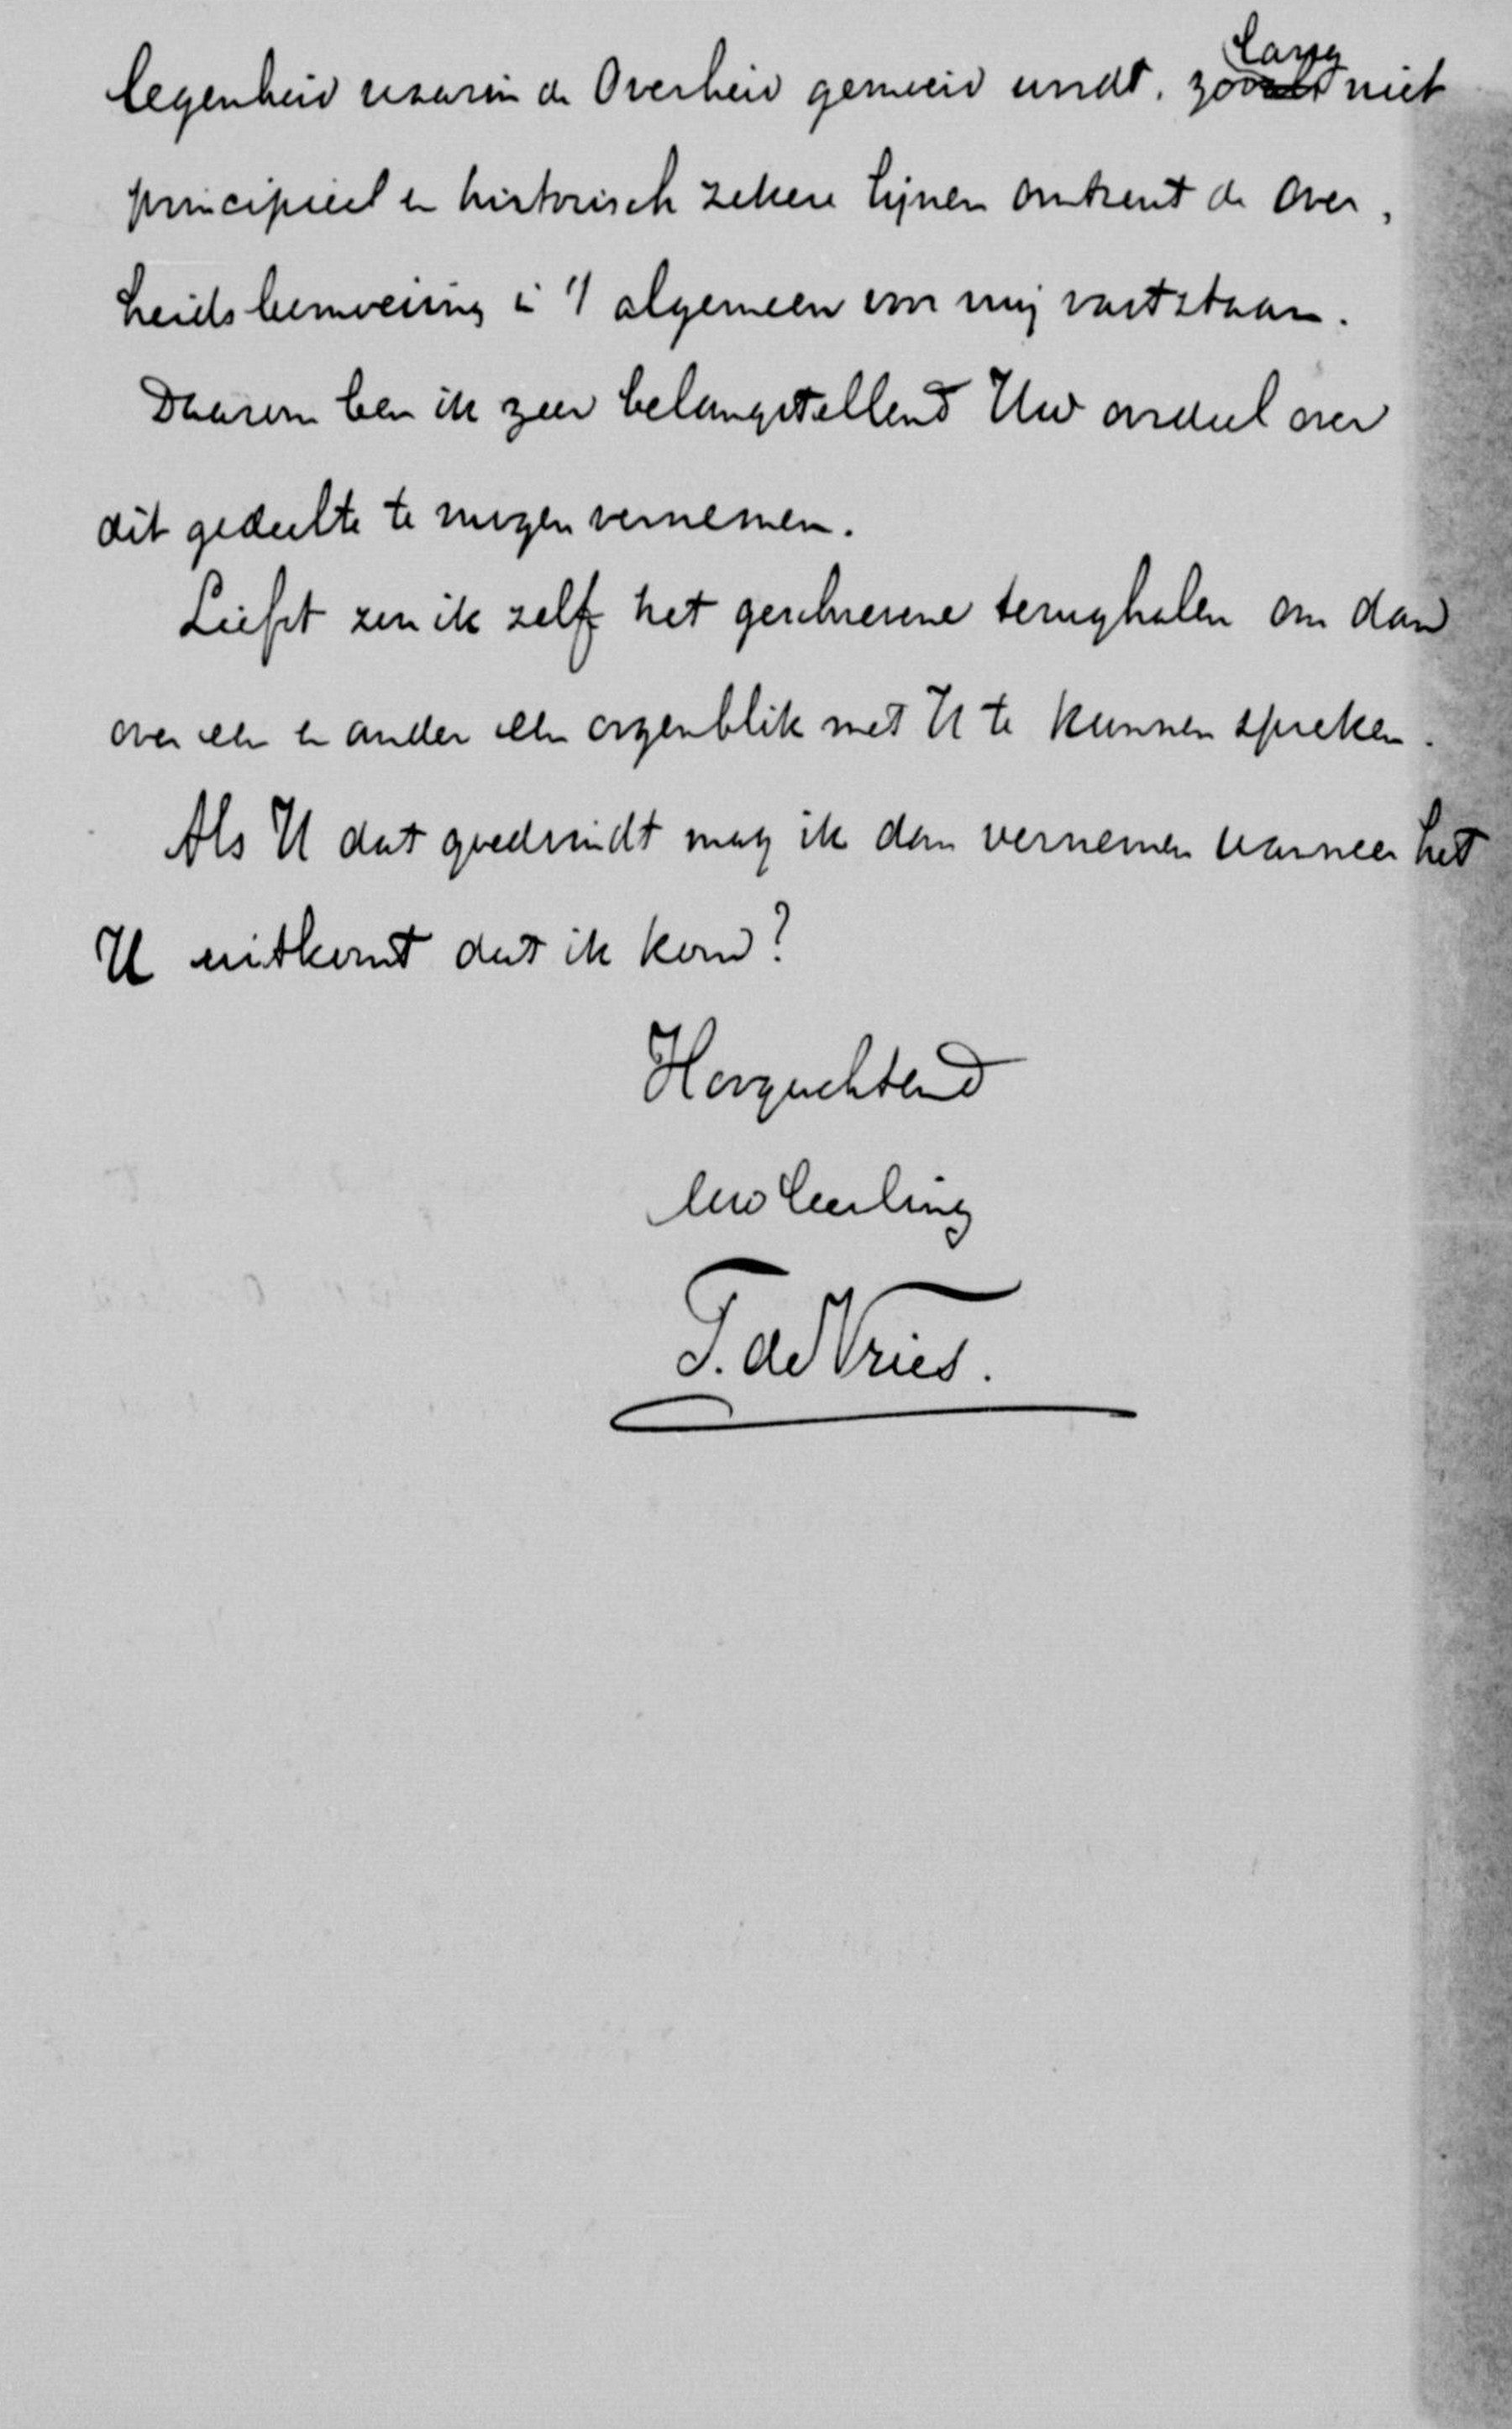 legenheid waarin de Overheid gemoeid wordt, zoolang niet
principieel en historisch zekere lijnen omtrent de Over,
heidsbemoeiing in 't algemeen voor mij vaststaan.
Daarom ben ik zeer belangstellend Uw oordeel over
dit gedeelte te mogen vernemen.
Liefst zou ik zelf het geschrevene terughalen om dan
over een en ander een oogenblik met U te kunnen spreken.
Als U dat goedvindt mag ik dan vernemen wanneer het
U uitkomt dat ik kom?
Hoogachtend
Uw leerling
T. de Vries.